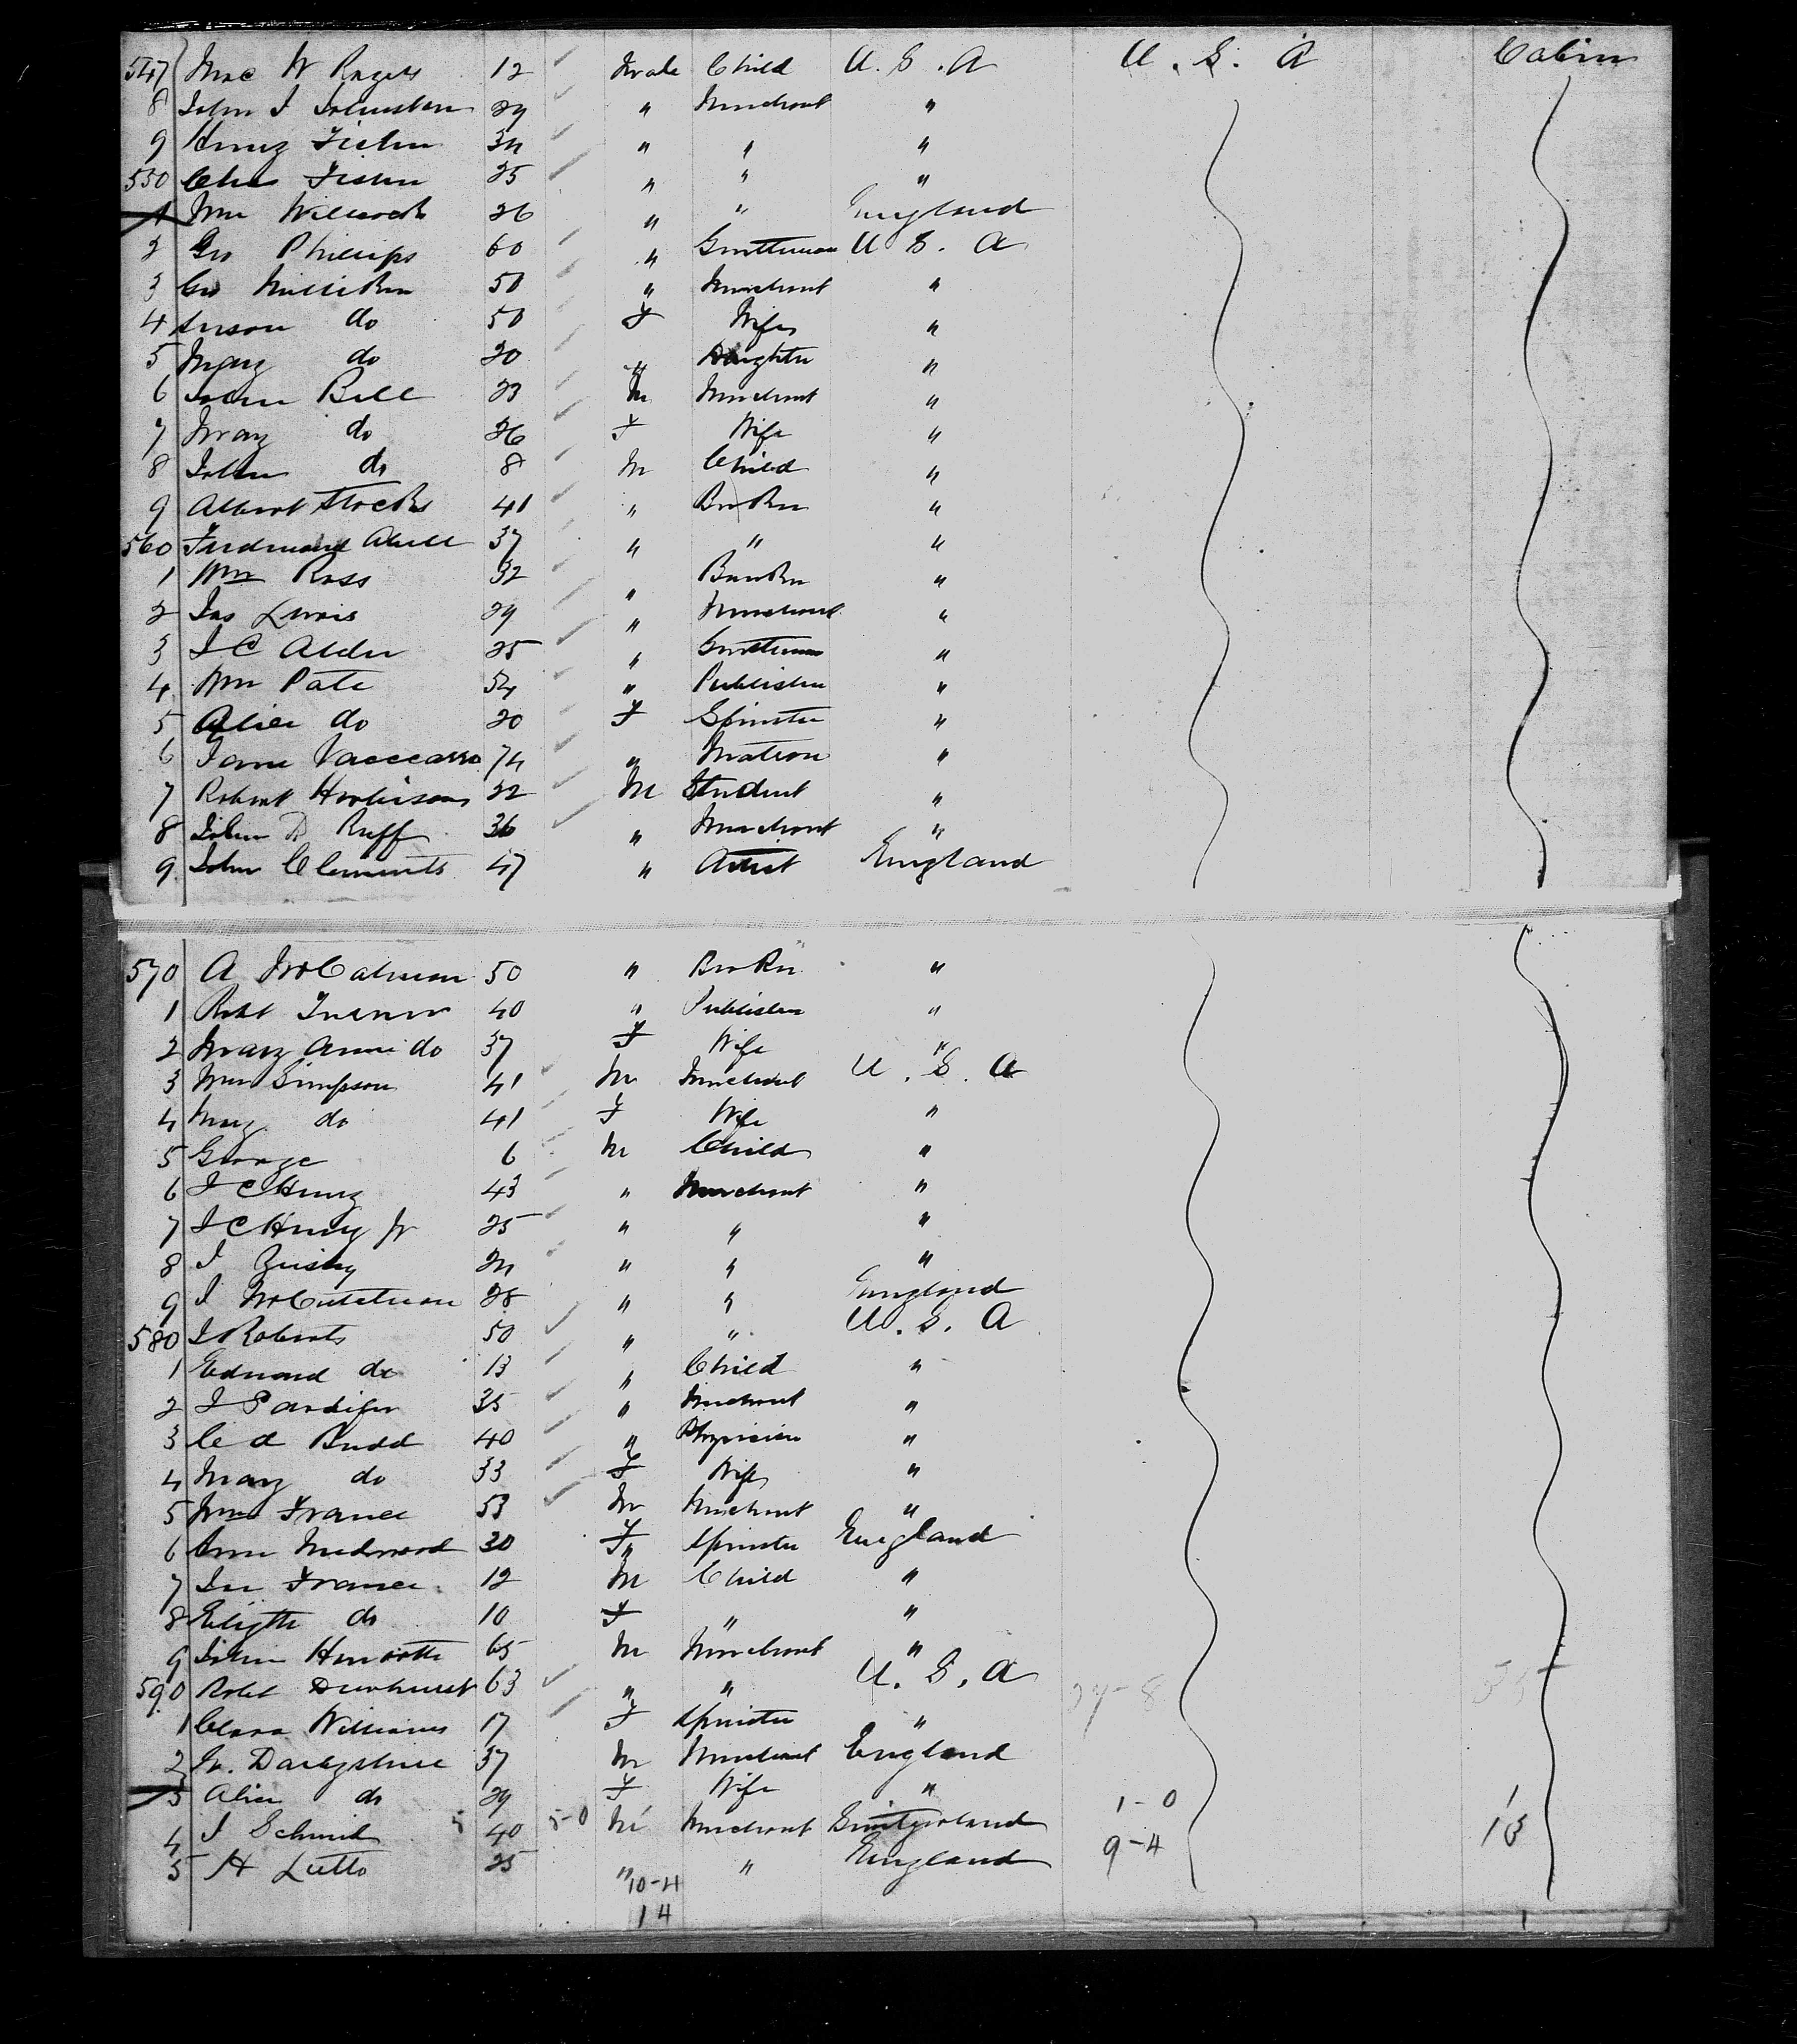 547 Mac W Rogers 12 Male Child U.S.A U.S.A Cabin
8 John I Johnston 29 " Merchant "
9 Henry Fisher 34 " " "
550 Chas Fisher 25 " " "
1 Wm Willcock 26 " " England
2 Geo Phillips 60 " Gentleman U S. A
3 Geo Milliken 50 " Merchant "
4 Susan do 50 F Wife "
5 Mary do 20 " Daughter "
6 John Bell 23 M Merchant "
7 Mary do 26 F Wife "
8 John do 8 M Child "
9 Albert Stocks 41 " Broker "
560 Ferdinand Abell 37 " " "
1 Wm Ross 32 " Banker "
2 Jas Lewis 29 " Merchant "
3 J C Alder 25 " Gentleman "
4 Wm Pate 54 " Publisher "
5 Alice do 20 F Spinster "
6 Jane Vaccarro 74 " Matron "
7 Robert Hutchison 22 M Student "
8 John D Ruff 36 " Merchant "
9 John Clements 47 " Artist England
570 A McCalman 50 " Broker "
1 Robt Turner 40 " Publisher "
2 Mary Anne do 37 F Wife "
3 Wm Simpson 41 M Merchant U.S.A
4 Mary do 41 F Wife "
5 George 6 M Child "
6 J C Henry 43 " Merchant "
7 J C Henry Jr 25 " " "
8 J 24 " " "
9 J McCutcheon 28 " " England
580 J Roberts 50 " " U.S.A
1 Edward do 13 " Child "
2 J Pardifer 35 " Merchant "
3 C A Budd 40 " Physician "
4 Mary do 33 F Wife "
5 Wm France 53 M Merchant "
6 Ann Midwood 30 F " Spinster England
7 Jn France 12 M Child "
8 Edyth do 10 F " "
9 John Howorth 65 M Merchant "
590 Robt Dewhurst 63 " " U.S.A 35
1 Clara Williams 17 F Spinster "
2 W. Darbyshire 37 M Merchant England
3 Alice do 29 F Wife "
4 J Schmid 40 5-0 M Merchant Switzerland 1-0
5 H Lutto 25 " " England 9-4 13
10-4
14